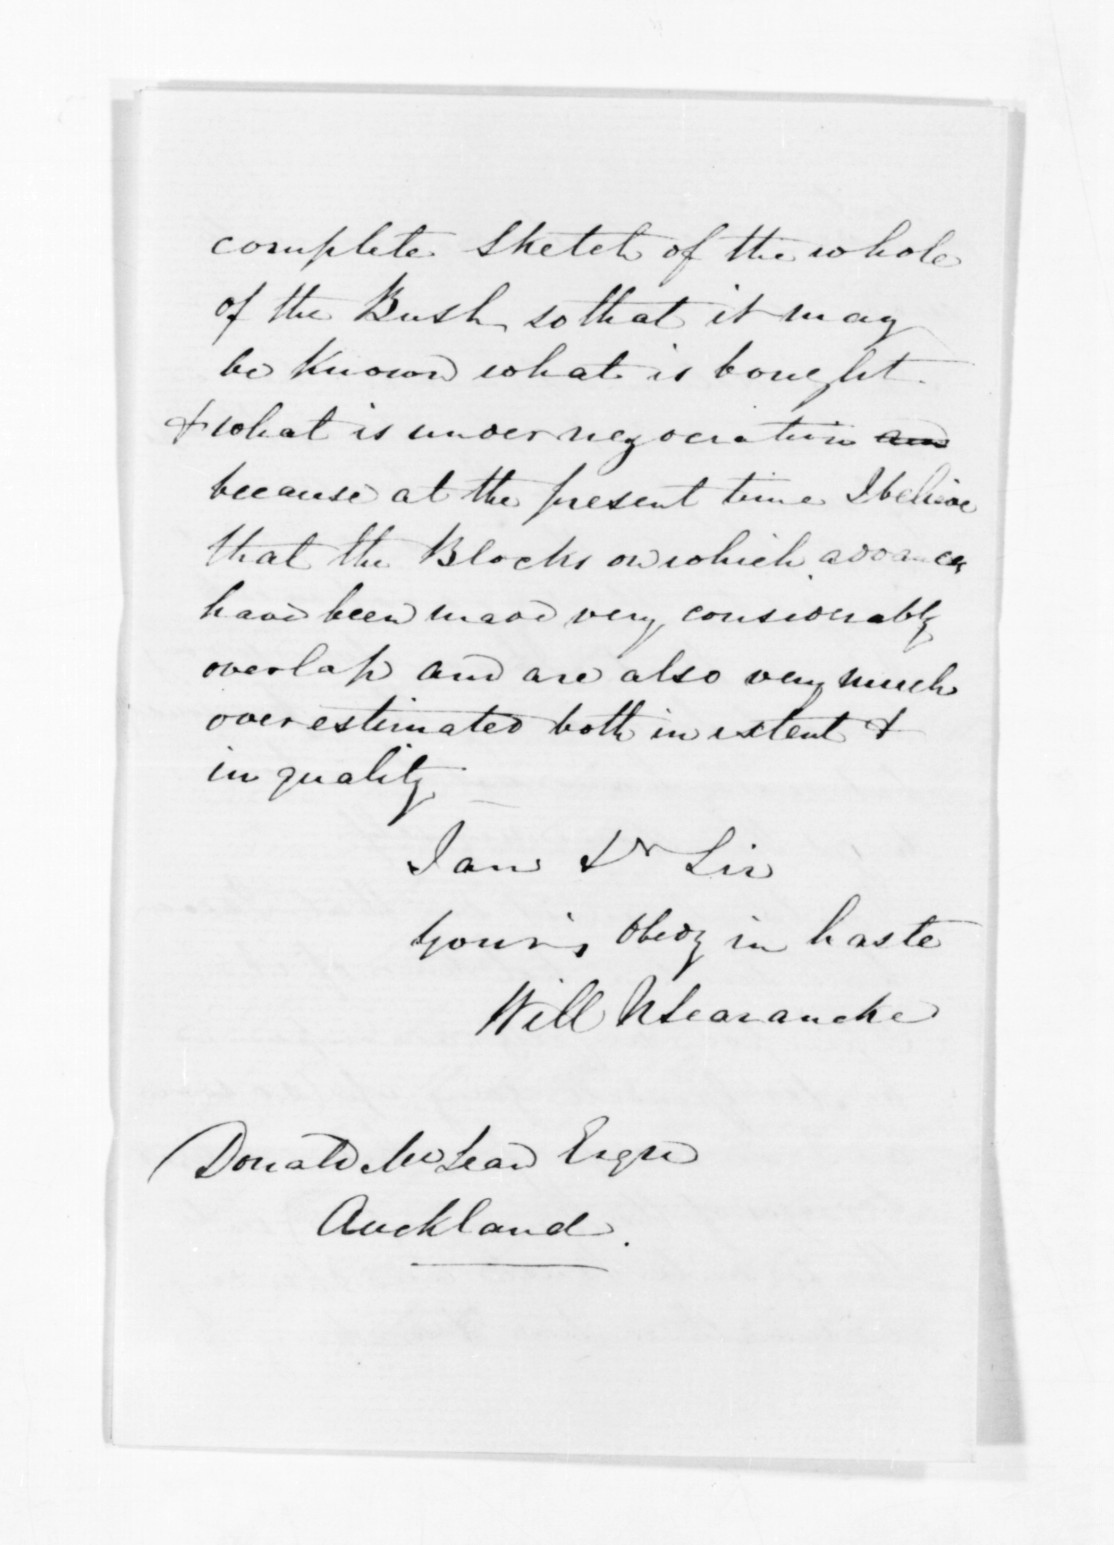 complete Sketch of the whole
of the Bush so that it may
be Known what is bought
& what is under negociation and
because at the present time I believe
that the Blocks on which advances
have been made very considerably
overlap and are also very much
over estimated both in extent &
in quality
I am Dr Sir
Your's Obedy in haste
Will N Searancke
Donald McLean Esqre
Auckland.